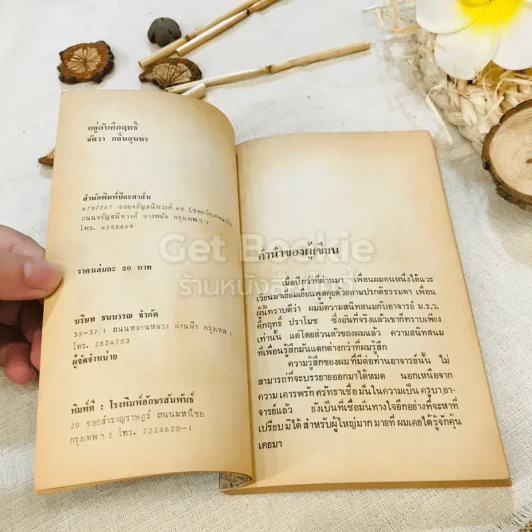 อยู่กับคึกฤทธิ์
จัตวา กลิ่นสุนทร
สำนักพิมพ์มีนะสาส์น
ถนนจรัญสนิทวงศ์ บางพลัด กรุงเทพฯ
โทร. 4245459
ราคาเล่มละ 20 บาท
บริษัท ธนบรรณ จำกัด
35-37/1 ถนนหลานหลวง ผ่านฟ้า กรุงเทพฯ
โทร. 2824753
ผู้จัดจำหน่าย
พิมพ์ที่ : โรงพิมพ์อักษรสัมพันธ์
20 ซอยสำราญราษฎร์ ถนนมหาไชย
กรุงเทพฯ 2 โทร. 2224620-1
คำนำของผู้เขียน
เมื่อปีกว่าที่ผ่านมา เพื่อนผมคนหนึ่งได้แวะ
เวียนมาเยี่ยมเยียนพูดคุยด้วยตามปรกติธรรมดา เพื่อน
ผู้ทราบดีว่า ผมมีความสนิทสนมกับอาจารย์ ม.ร.ว.
คึกฤทธิ์ ปราโมช ซึ่งอันที่จริงแล้วเขาก็ทราบเพียง
เท่านั้น แต่โดยส่วนตัวของผมแล้ว ความสนิทสนม
ที่เพื่อนรู้สึกมันแตกต่างกว่าที่ผมรู้สึก
ความรู้สึกของผมที่มีต่อท่านอาจารย์นั้น ไม่
สามารถที่จะบรรยายออกมาได้หมด นอกเหนือจาก
ความเคารพรักศรัทธาเชื่อมั่นในความเป็น ครูบาอา-
จารย์แล้ว ยังเป็นที่เชื่อมั่นทางใจอีกอย่างที่จะหาที่
เปรียบมิได้ สำหรับผู้ใหญ่มากมายที่ผมเคยได้รู้จักคุ้น
เคยมา
Get Bookie
ร้านหนังสือ